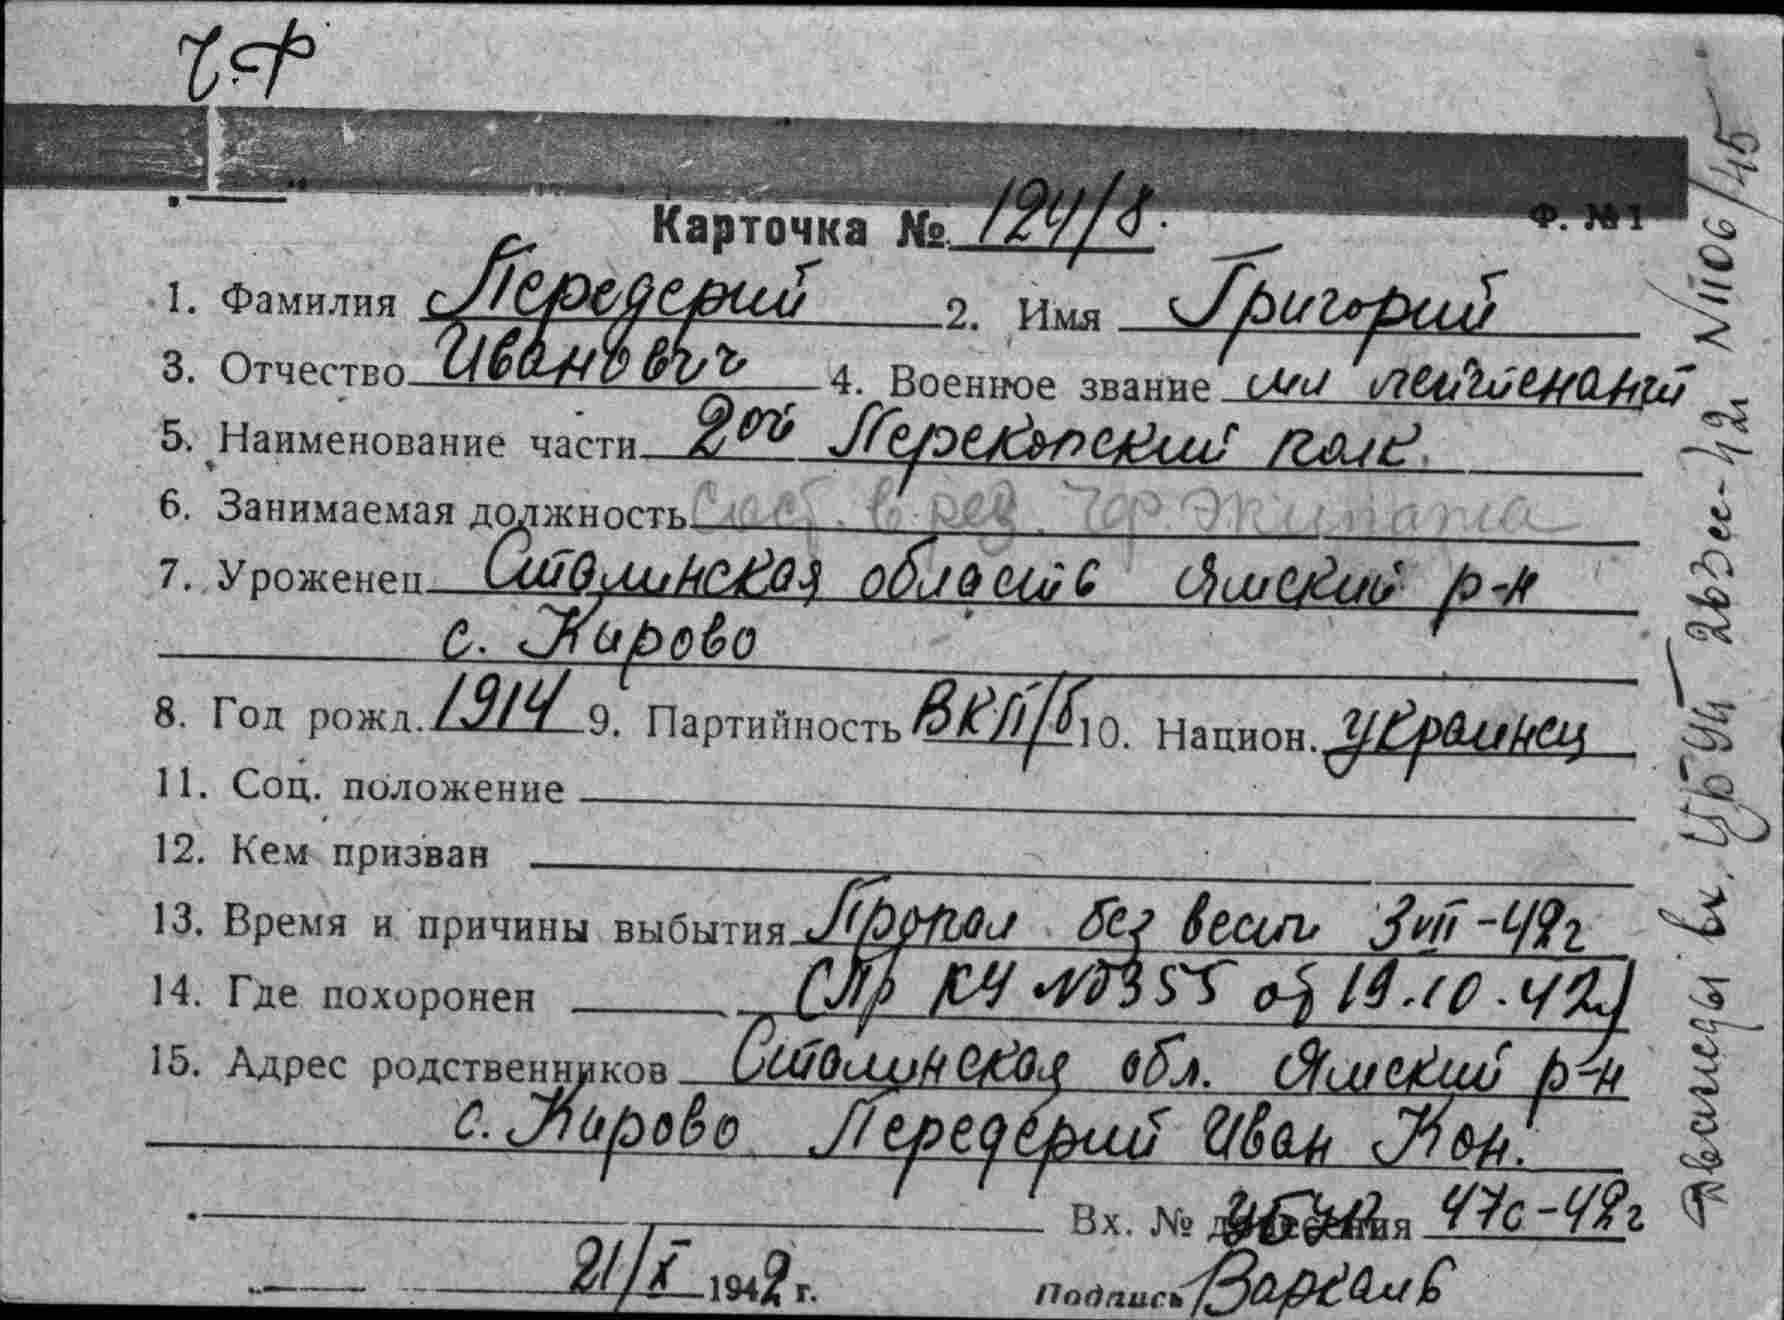 ЧФ
Карточка № 124/8.
Ф. № 1
1. Фамилия Передерий 2. Имя Григорий
3. Отчество Иванович 4. Военное звание мл лейтенант
5. Наименование части 2ой Перекопский полк.
6. Занимаемая должность Сост. в рез. Чф. Экипажа
7. Уроженец Сталинская область Ямский р-н
с. Кирово
8. Год рожд. 1914 9. Партийность ВКП/б 10. Национ. украинец
11. Соц. положение
12. Кем призван
13. Время и причины выбытия Пропал без вести 3 VII-42г
14. Где похоронен (Пр КЧ №0355 от 19.10.42)
15. Адрес родственников Сталинская обл. Ямский р-н
с. Кирово Передерий Иван Кон.
Вх. № донесения 47с-42г
21/X 1942 г. Подпись
вх. 263сс-42г №1106/45